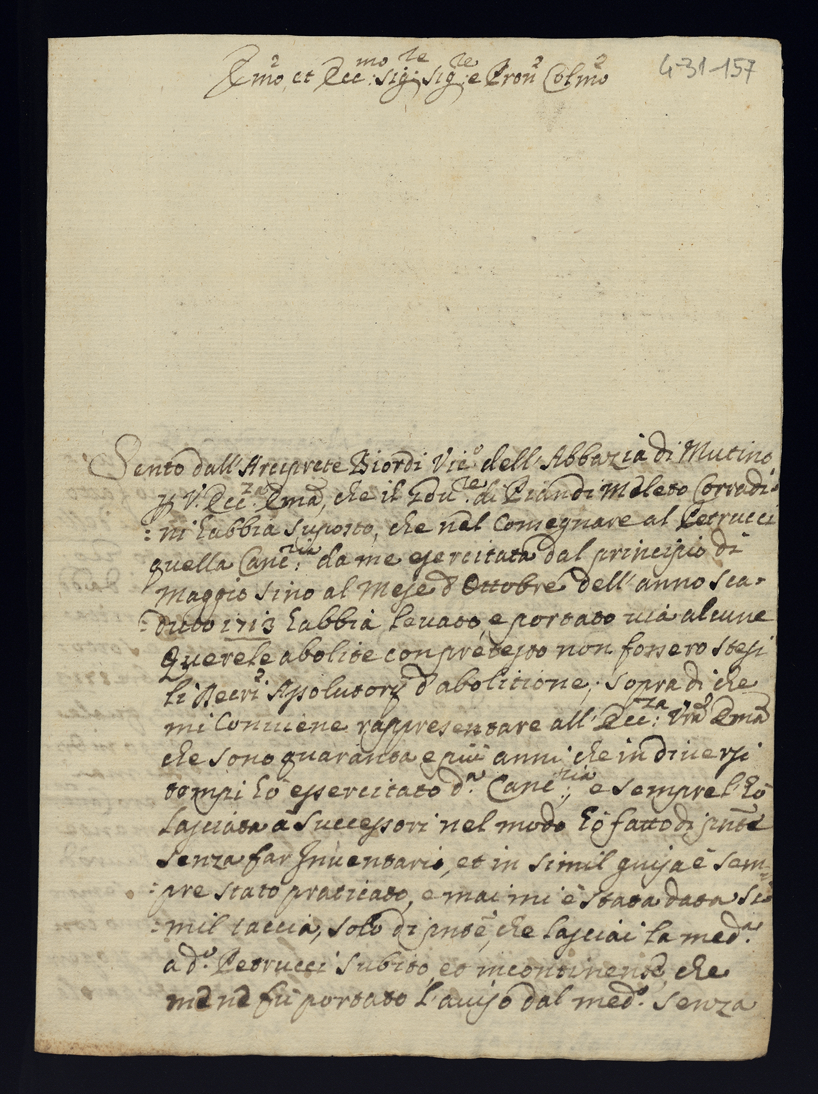 Emo, et Ecc:mo Sig:re Sig:re e Pron Colmo
4-31-157
Sento dall'Arciprete Biordi Vic.o dell'Abbazia di Mutino
V. Ecc:za Ema, che il di Piandi Meleto Corradi=
=ni habbia suposto, che nel consegnare al Petrucci
quella Canc:ria da me esercitata dal principio di
Maggio sino al Mese d'Ottobre dell'anno sca=
=duto 1713 habbia levato, e portato via alcune
Querele abolite con pretesto non fossero stesi
li Decri Asolutorij d'abolitione, sopra di che
mi conviene rappresentare all'Ecc:za Vra Ema
che sono quaranta e più anni che in diversi
tempi hò essercitato d.a Canc:ria, e sempre l'hò
lasciata à successori nel modo hò fatto di pnte
senza far Inventario, et in simil guisa è sem=
=pre stato praticato, e mai mi è stata data si=
=mil taccia, solo di pnte, che lasciai la med.a
a d.o Petrucci subito et incontinente, che
me ne fù portato l'aviso dal med.o senza